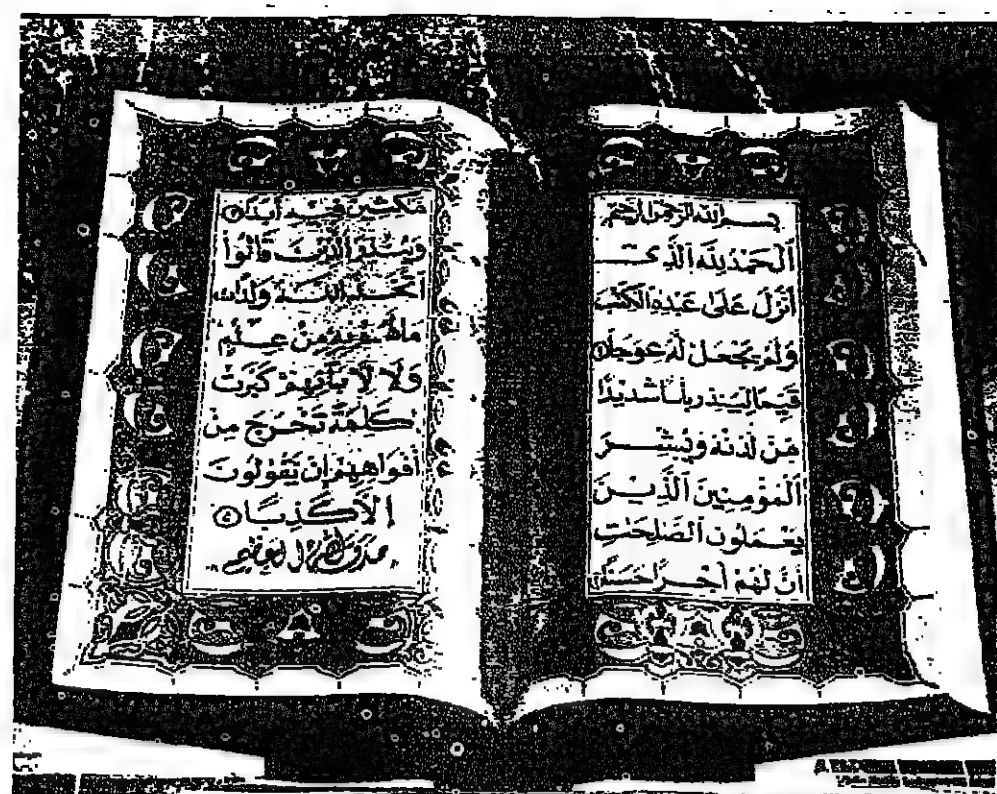 بِسْمِ اللَّهِ الرَّحْمَنِ الرَّحِيمِ
ٱلْحَمْدُ لِلَّهِ ٱلَّذِىٓ
أَنزَلَ عَلَىٰ عَبْدِهِ ٱلْكِتَٰبَ
وَلَمْ يَجْعَل لَّهُۥ عِوَجَا ①
قَيِّمًا لِّيُنذِرَ بَأْسًا شَدِيدًا
مِّن لَّدُنْهُ وَيُبَشِّرَ
ٱلْمُؤْمِنِينَ ٱلَّذِينَ
يَعْمَلُونَ ٱلصَّٰلِحَٰتِ
أَنَّ لَهُمْ أَجْرًا حَسَنًا ②
مَّٰكِثِينَ فِيهِ أَبَدًا ③
وَيُنذِرَ ٱلَّذِينَ قَالُوا۟
ٱتَّخَذَ ٱللَّهُ وَلَدًا ④
مَّا لَهُم بِهِۦ مِنْ عِلْمٍ
وَلَا لِءَابَآئِهِمْ كَبُرَتْ
كَلِمَةً تَخْرُجُ مِنْ
أَفْوَٰهِهِمْ إِن يَقُولُونَ
إِلَّا كَذِبًا ⑤
صدق الله العظيم